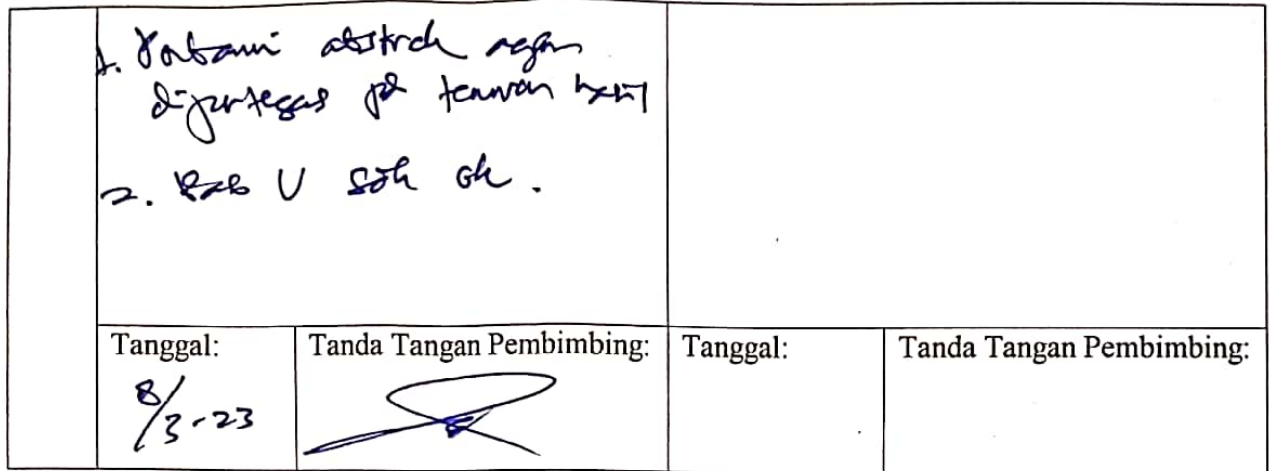 1. abstrak
dipertegas pd temuan
2. Bab V sdh ok.
Tanggal:
8/3-23
Tanda Tangan Pembimbing:
Tanggal:
Tanda Tangan Pembimbing: